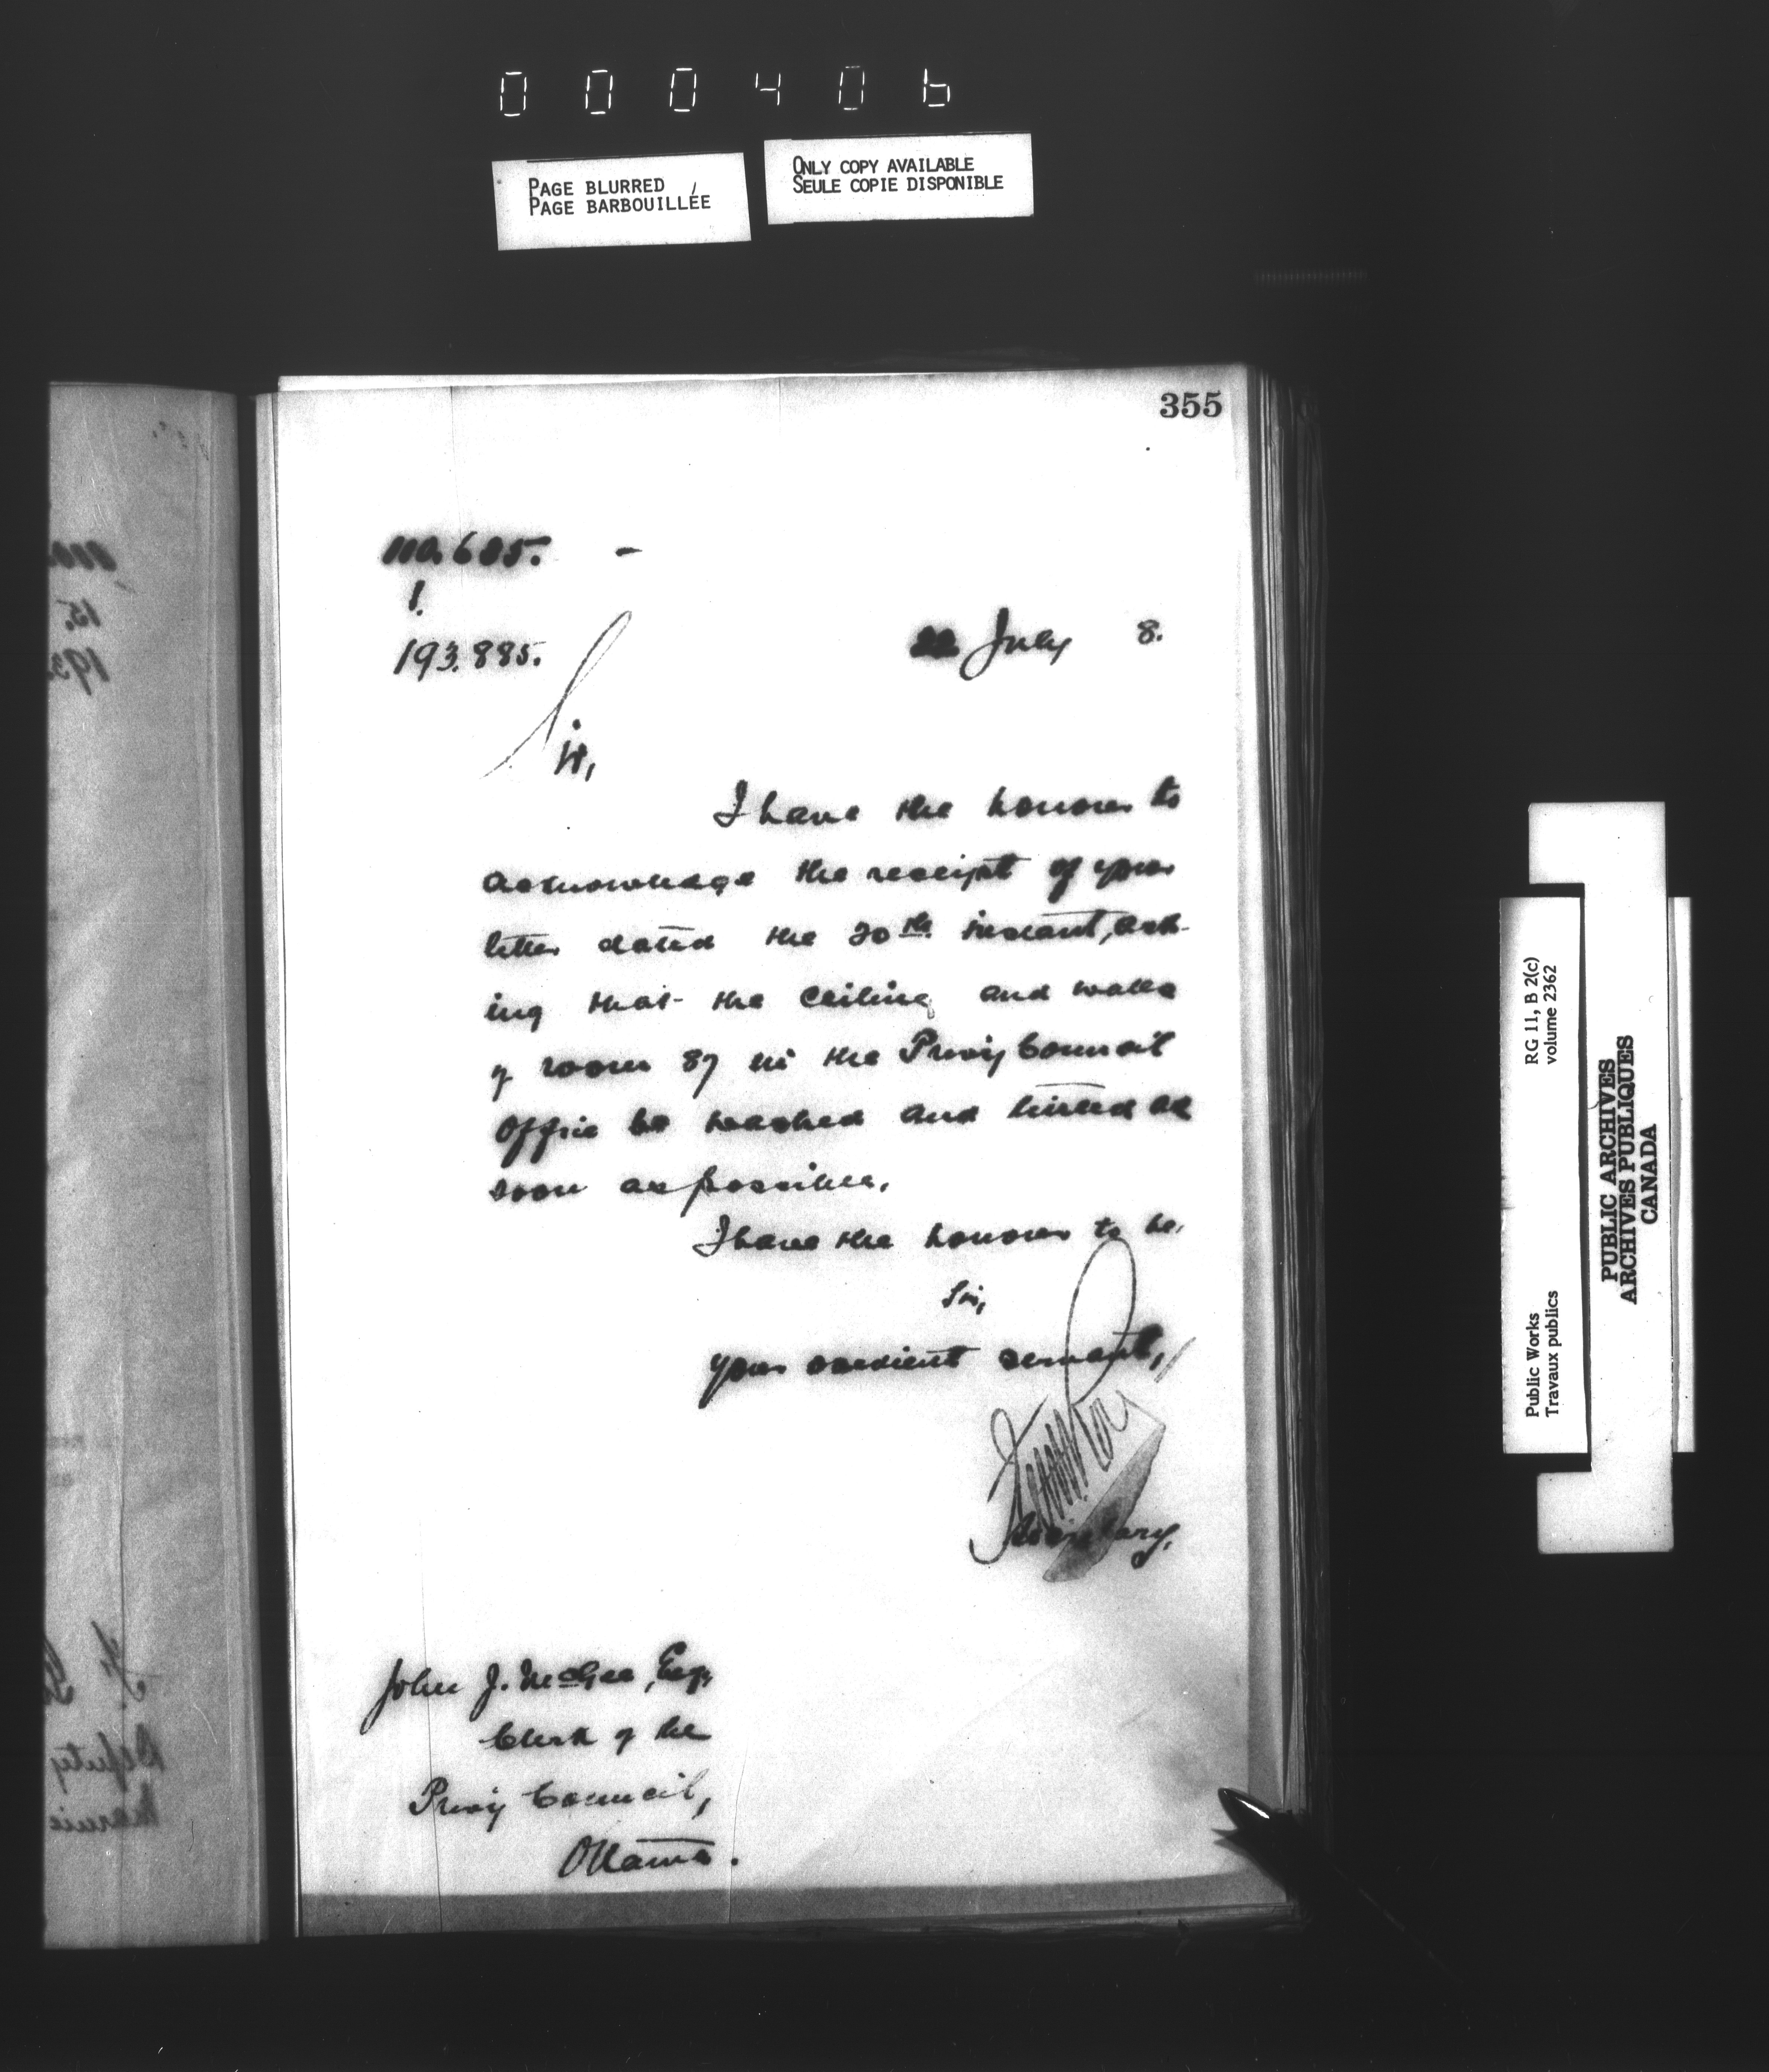 000406
PAGE BLURRED
PAGE BARBOUILLÉE
ONLY COPY AVAILABLE
SEULE COPIE DISPONIBLE
355
No. 685.
1.
193.885.
22 July 8.
Sir,
I have the honour to
acknowledge the receipt of your
letter dated the 20th instant, ask-
ing that the ceiling and walls
of room 87 in the Privy Council
Office be washed and tinted as
soon as possible.
I have the honour to be,
Sir,
Your obedient servant,
Secretary.
John J. McGee, Esq,
Clerk of the
Privy Council,
Ottawa.
Public Works
Travaux publics
RG 11, B 2(c)
volume 2362
PUBLIC ARCHIVES
ARCHIVES PUBLIQUES
CANADA